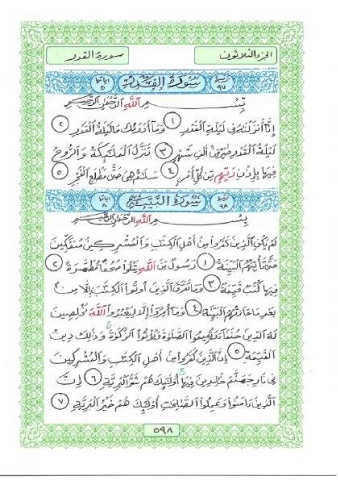 الجزء الثلاثون
سورة القدر
ترتيبها ٩٧ سورة القدر آياتها ٥
بِسْمِ اللَّهِ الرَّحْمَٰنِ الرَّحِيمِ
إِنَّا أَنزَلْنَاهُ فِي لَيْلَةِ الْقَدْرِ ١ وَمَا أَدْرَاكَ مَا لَيْلَةُ الْقَدْرِ ٢
لَيْلَةُ الْقَدْرِ خَيْرٌ مِّنْ أَلْفِ شَهْرٍ ٣ تَنَزَّلُ الْمَلَائِكَةُ وَالرُّوحُ
فِيهَا بِإِذْنِ رَبِّهِم مِّن كُلِّ أَمْرٍ ٤ سَلَامٌ هِيَ حَتَّىٰ مَطْلَعِ الْفَجْرِ ٥
ترتيبها ٩٨ سورة البينة آياتها ٨
بِسْمِ اللَّهِ الرَّحْمَٰنِ الرَّحِيمِ
لَمْ يَكُنِ الَّذِينَ كَفَرُوا مِنْ أَهْلِ الْكِتَابِ وَالْمُشْرِكِينَ مُنفَكِّينَ
حَتَّىٰ تَأْتِيَهُمُ الْبَيِّنَةُ ١ رَسُولٌ مِّنَ اللَّهِ يَتْلُو صُحُفًا مُّطَهَّرَةً ٢
فِيهَا كُتُبٌ قَيِّمَةٌ ٣ وَمَا تَفَرَّقَ الَّذِينَ أُوتُوا الْكِتَابَ إِلَّا مِن
بَعْدِ مَا جَاءَتْهُمُ الْبَيِّنَةُ ٤ وَمَا أُمِرُوا إِلَّا لِيَعْبُدُوا اللَّهَ مُخْلِصِينَ
لَهُ الدِّينَ حُنَفَاءَ وَيُقِيمُوا الصَّلَاةَ وَيُؤْتُوا الزَّكَاةَ وَذَٰلِكَ دِينُ
الْقَيِّمَةِ ٥ إِنَّ الَّذِينَ كَفَرُوا مِنْ أَهْلِ الْكِتَابِ وَالْمُشْرِكِينَ
فِي نَارِ جَهَنَّمَ خَالِدِينَ فِيهَا أُولَٰئِكَ هُمْ شَرُّ الْبَرِيَّةِ ٦ إِنَّ
الَّذِينَ آمَنُوا وَعَمِلُوا الصَّالِحَاتِ أُولَٰئِكَ هُمْ خَيْرُ الْبَرِيَّةِ ٧
٥٩٨